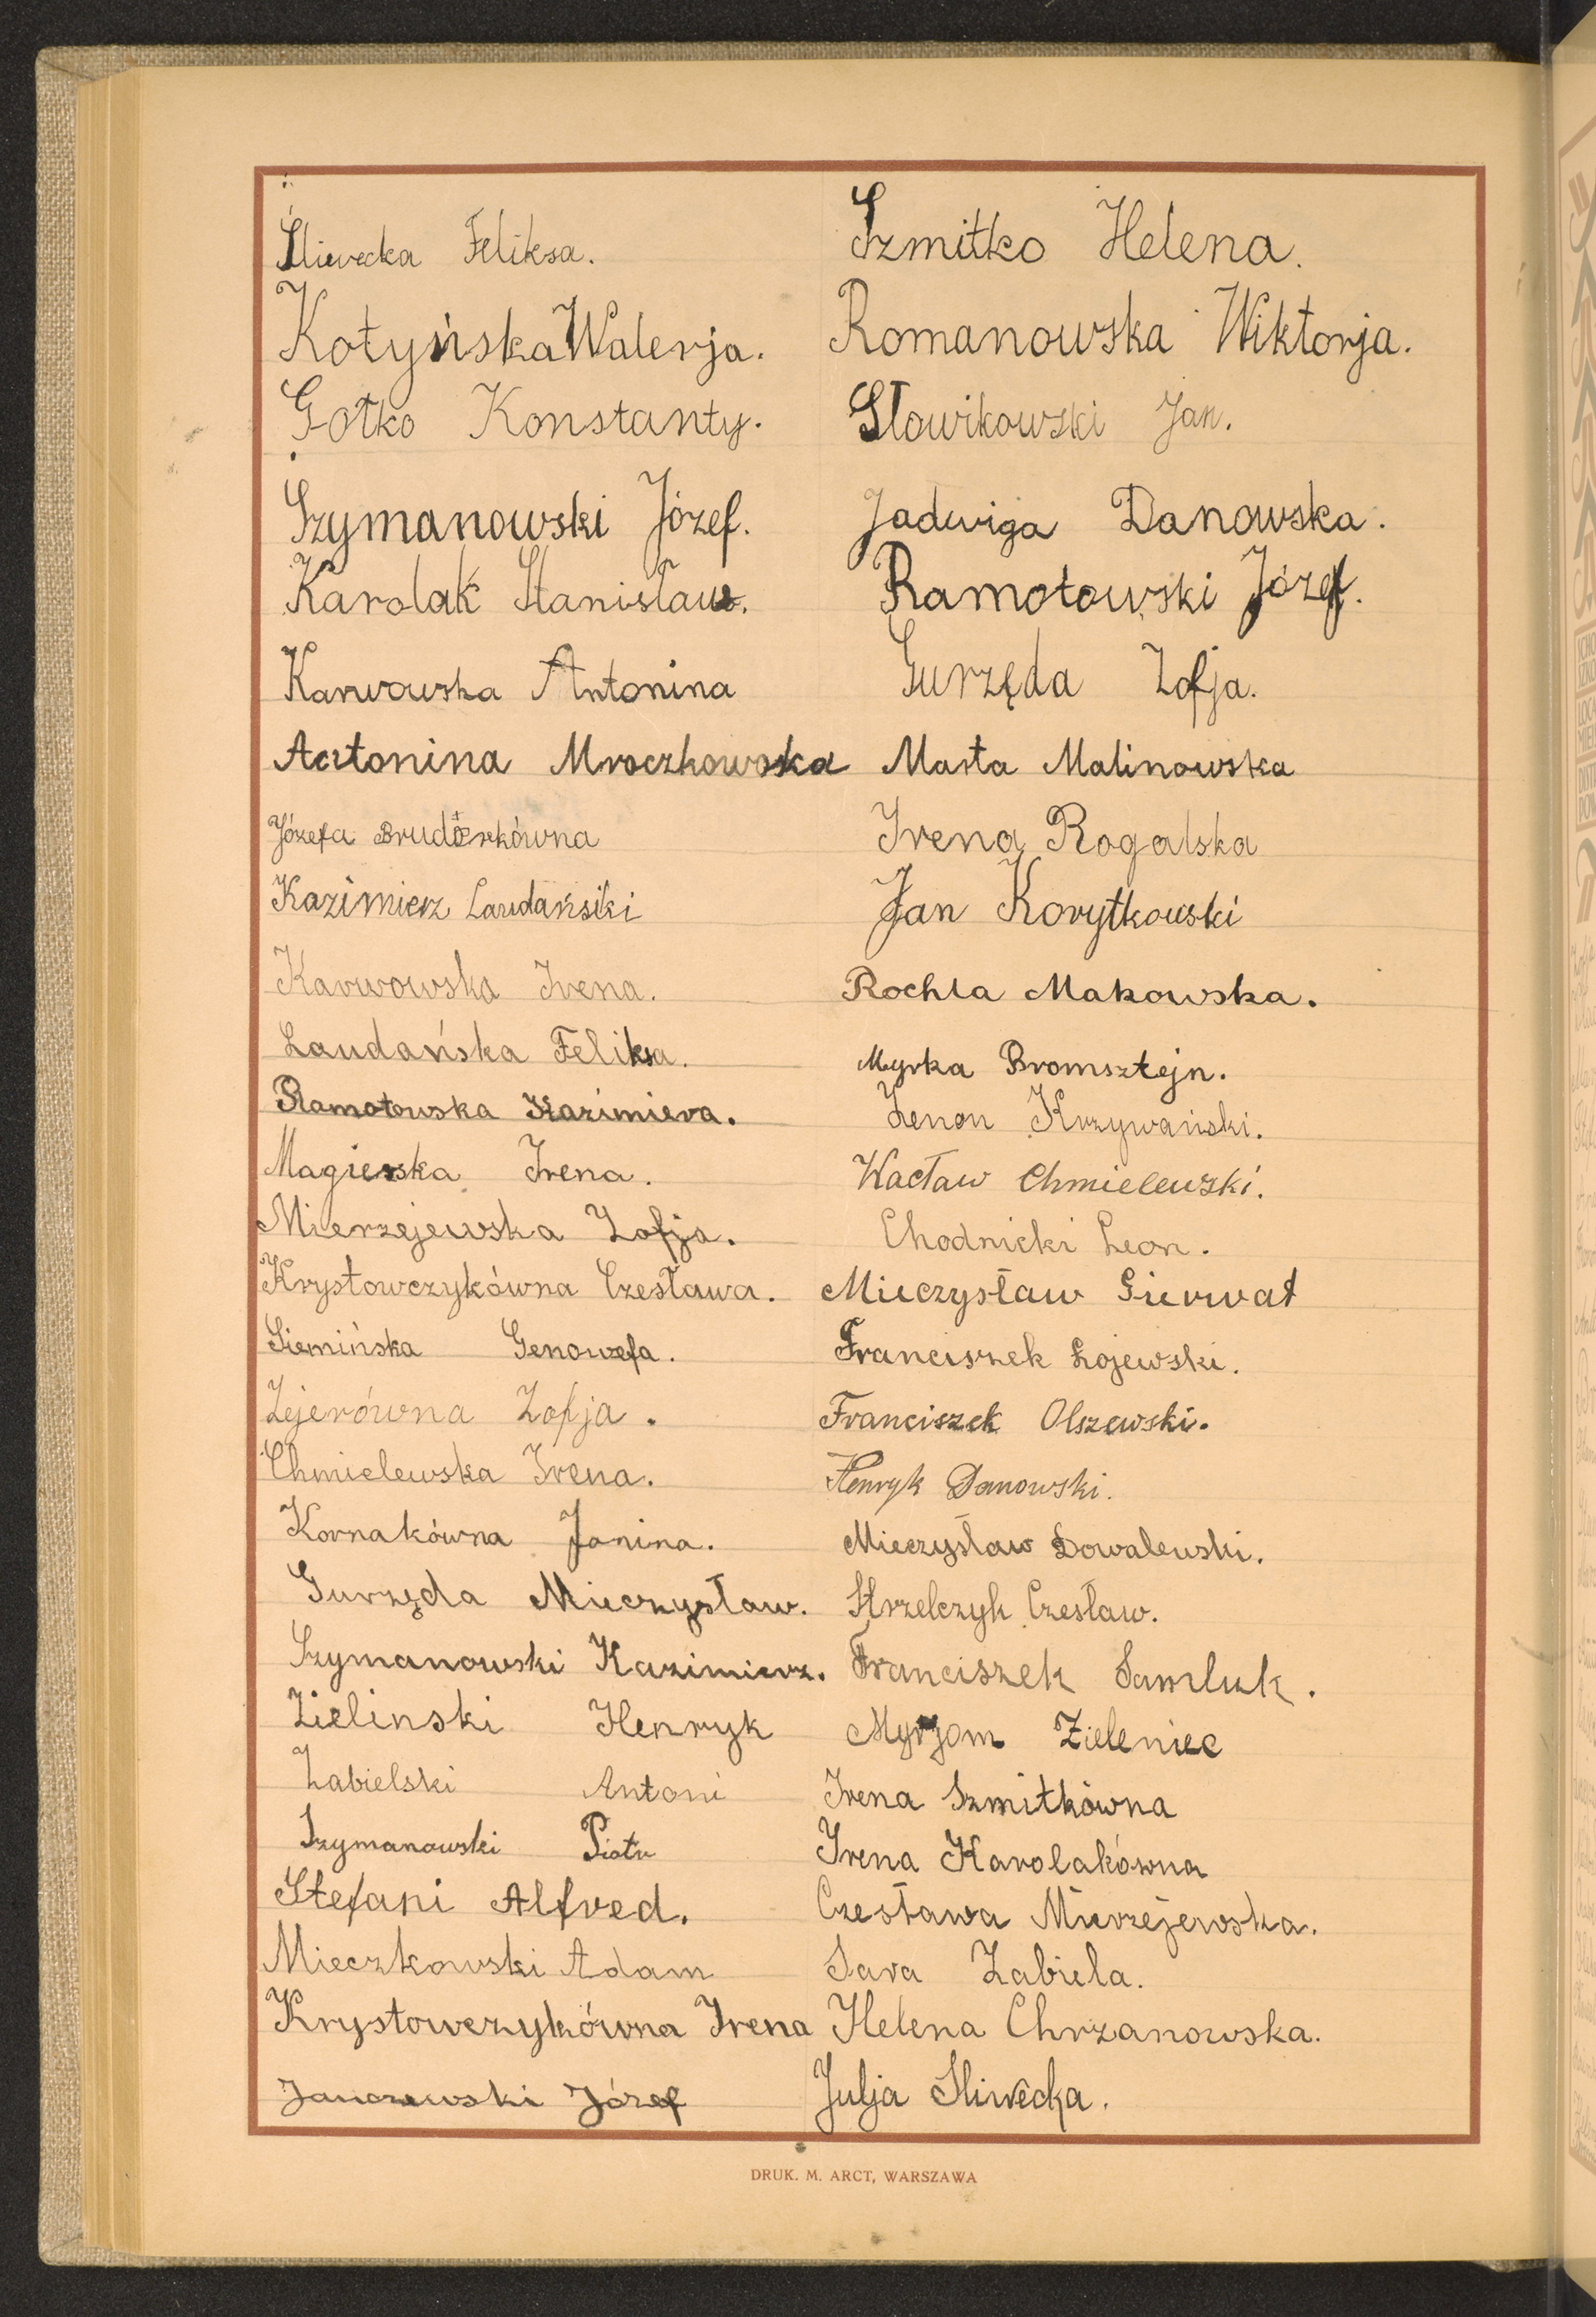 Śliwecka Feliksa.
Kotyńska Walerja.
Gołko Konstanty.
Szymanowski Józef.
Karolak Stanisław.
Karwowska Antonina
Antonina Mroczkowska
Józefa Bruderkówna
Kazimierz Laudański
Karwowska Irena.
Laudańska Feliksa.
Ramotowska Kazimiera.
Magierska Irena.
Mierzejewska Zofja.
Krystowczykówna Czesława.
Siemińska Genowefa.
Zejerówna Zofja.
Chmielewska Irena.
Kornakówna Janina.
Gurzęda Mieczysław.
Szymanowski Kazimierz.
Zielinski Henryk
Zabielski Antoni
Szymanowski Piotr
Stefani Alfred.
Mieczkowski Adam
Krystowczykówna Irena
Janczewski Józef
Szmitko Helena.
Romanowska Wiktorja.
Słowikowski Jan.
Jadwiga Danowska.
Ramotowski Józef.
Gurzęda Zofja.
Marta Malinowska
Irena Rogalska
Jan Korytkowski
Rochla Makowska.
Myrka Bromsztejn.
Zenon Krzywański.
Wacław Chmielewski.
Chodnicki Leon.
Mieczysław Gierwat
Franciszek Łojewski.
Franciszek Olszewski.
Henryk Danowski.
Mieczysław Kowalewski.
Strzelczyk Czesław.
Franciszek Samluk.
Myrjam Zieleniec
Irena Szmitkówna
Irena Karolakówna
Czesława Mierzejewska.
Sara Zabiela.
Helena Chrzanowska.
Julja Śliwecka.
DRUK. M. ARCT, WARSZAWA